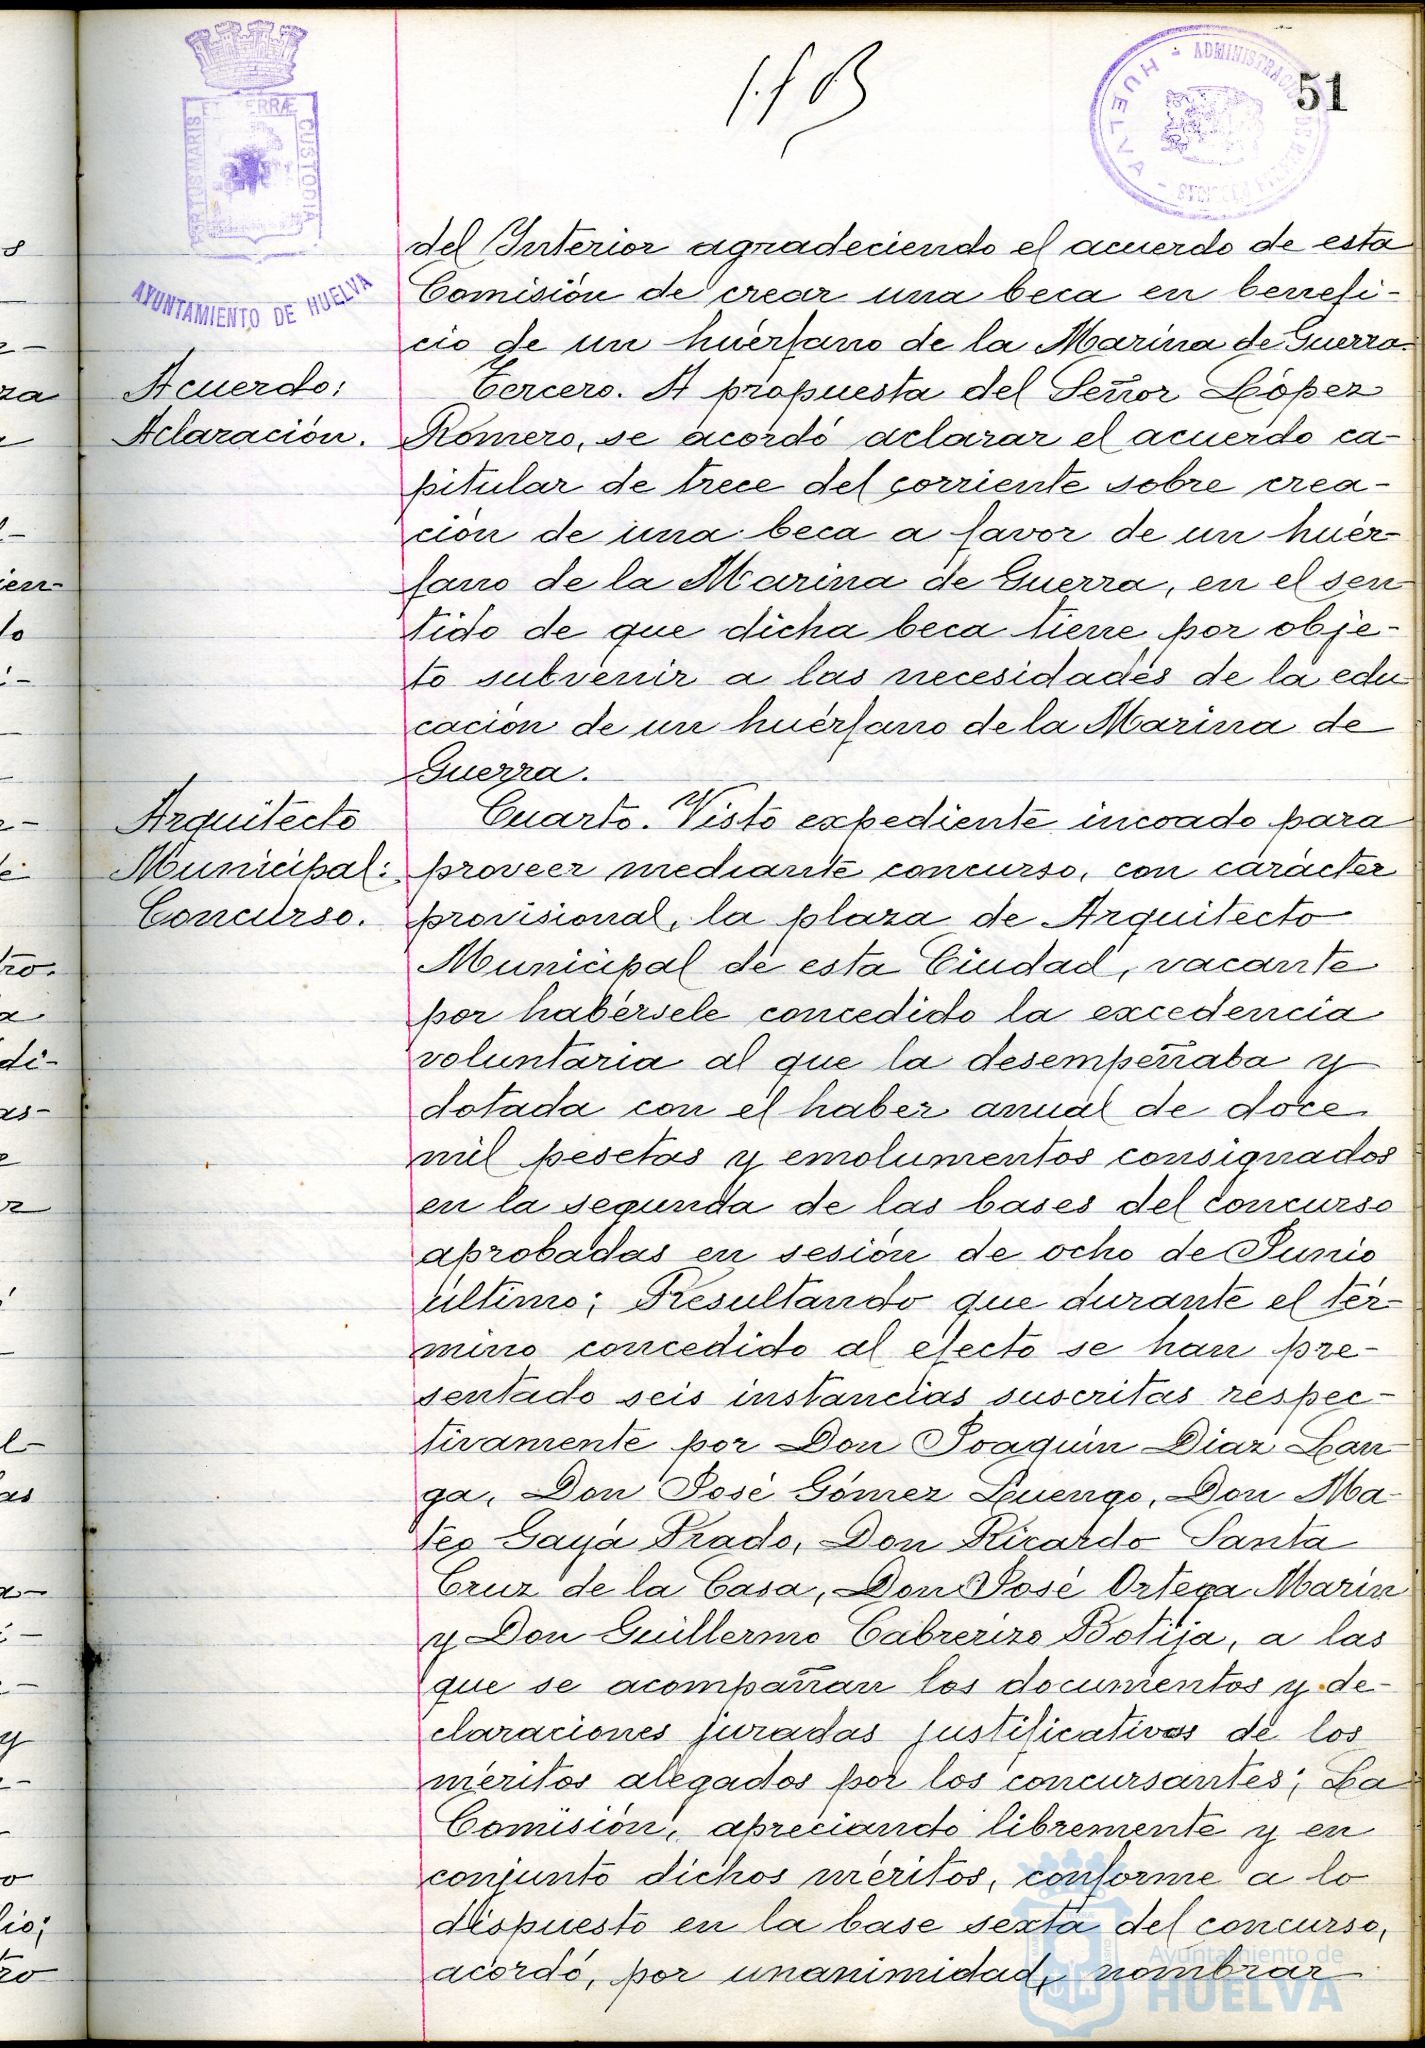 51
PORTUS MARIS ET TERRÆ CUSTODIA
AYUNTAMIENTO DE HUELVA
HUELVA
del Interior agradeciendo el acuerdo de esta
Comisión de crear una beca en benefi-
cio de un huérfano de la Marina de Guerra.
Acuerdo:
Aclaración.
Tercero. A propuesta del Señor López
Romero, se acordó aclarar el acuerdo ca-
pitular de trece del corriente sobre crea-
ción de una beca a favor de un huér-
fano de la Marina de Guerra, en el sen
tido de que dicha beca tiene por obje-
to subvenir a las necesidades de la edu
cación de un huérfano de la Marina de
Guerra.
Arquitecto
Municipal:
Concurso.
Cuarto. Visto expediente incoado para
proveer mediante concurso, con carácter
provisional, la plaza de Arquitecto
Municipal de esta Ciudad, vacante
por habérsele concedido la excedencia
voluntaria al que la desempeñaba y
dotada con el haber anual de doce
mil pesetas y emolumentos consignados
en la segunda de las bases del concurso
aprobadas en sesión de ocho de Junio
último; Resultando que durante el tér-
mino concedido al efecto se han pre-
sentado seis instancias suscritas respec-
tivamente por Don Joaquín Diaz Lan
ga, Don José Gómez Luengo, Don Ma-
teo Gayá Prado, Don Ricardo Santa
Cruz de la Casa, Don José Ortega Marín
y Don Guillermo Cabrerizo Botija, a las
que se acompañan los documentos y de-
claraciones juradas justificativas de los
méritos alegados por los concursantes; La
Comisión, apreciando libremente y en
conjunto dichos méritos, conforme a lo
dispuesto en la base sexta del concurso,
acordó, por unanimidad, nombrar
Ayuntamiento de
HUELVA